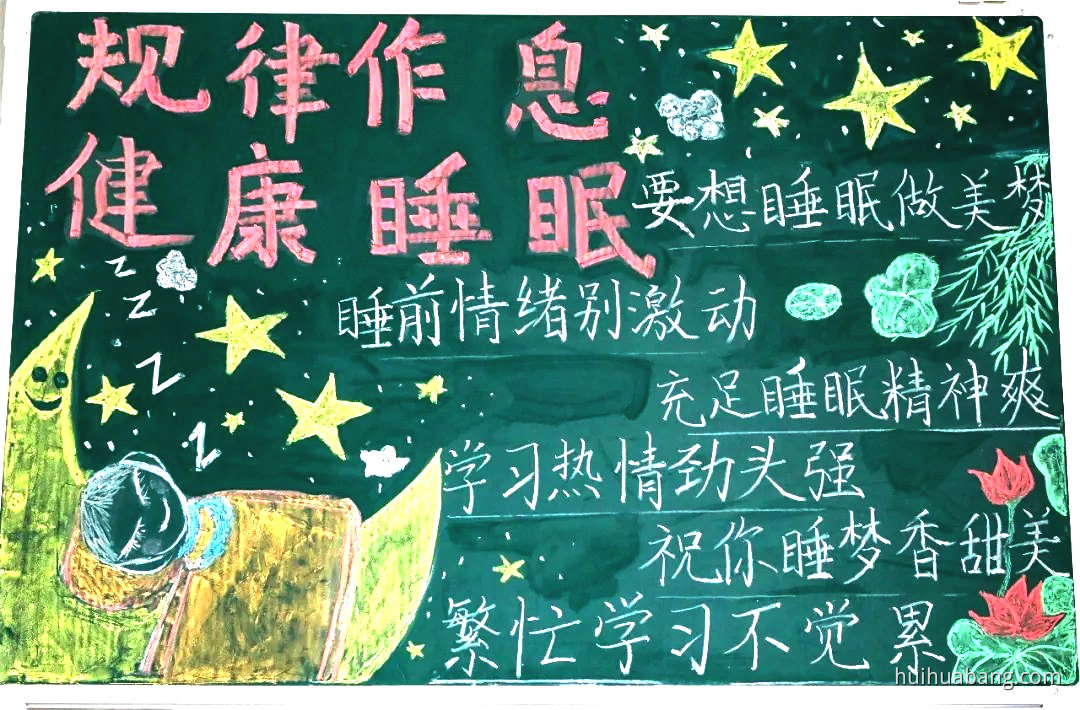 规律作息
健康睡眠
要想睡眠做美梦
睡前情绪别激动
充足睡眠精神爽
学习热情劲头强
祝你睡梦香甜美
繁忙学习不觉累
z
z
z
z
huihuabang.com